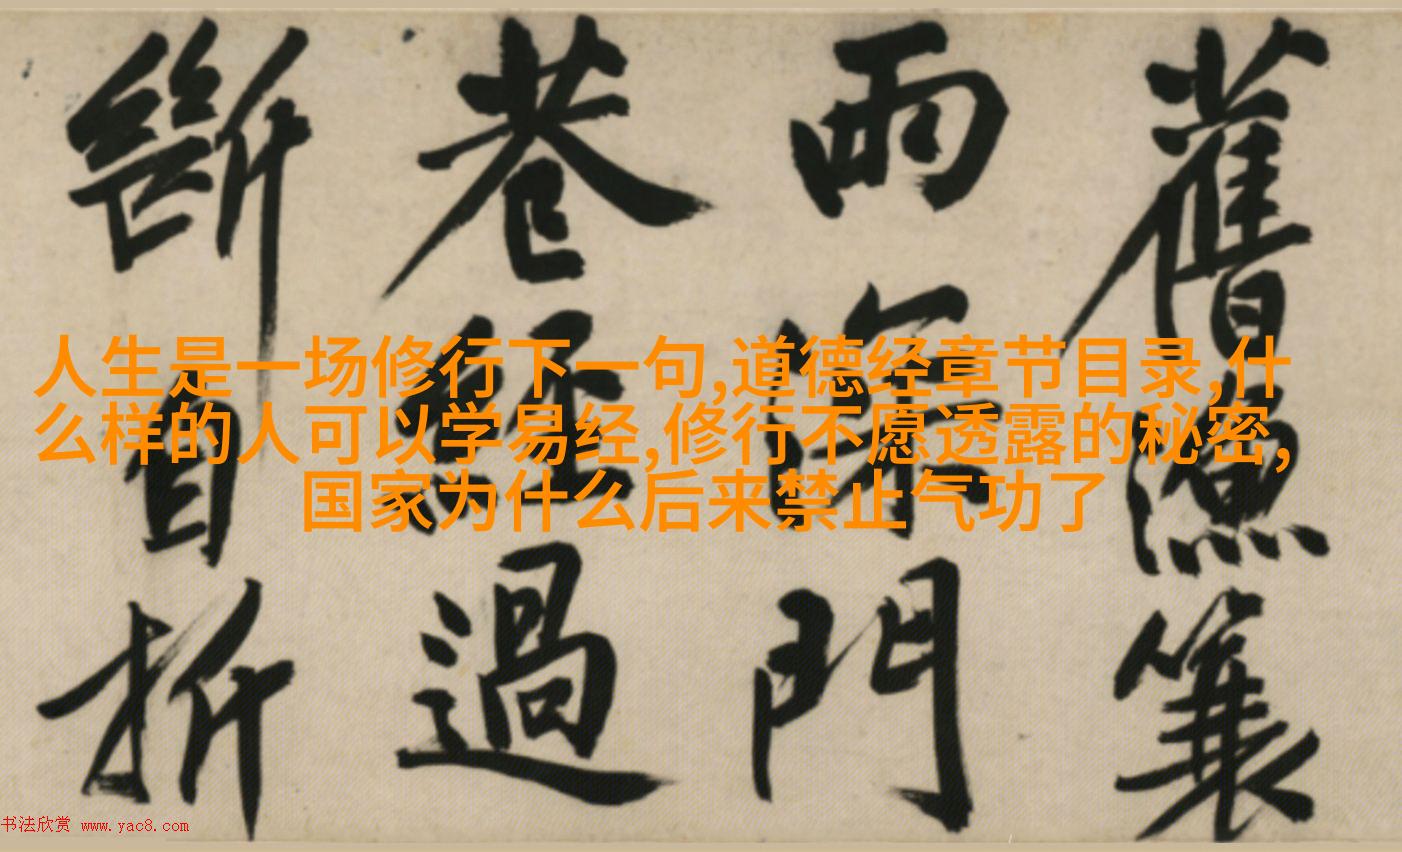 舊漁蓑
雨深門
巷經過
斷自折
人生是一场修行下一句,道德经章节目录,什
么样的人可以学易经,修行不愿透露的秘密,
国家为什么后来禁止气功了
书法欣赏 www.yac8.com